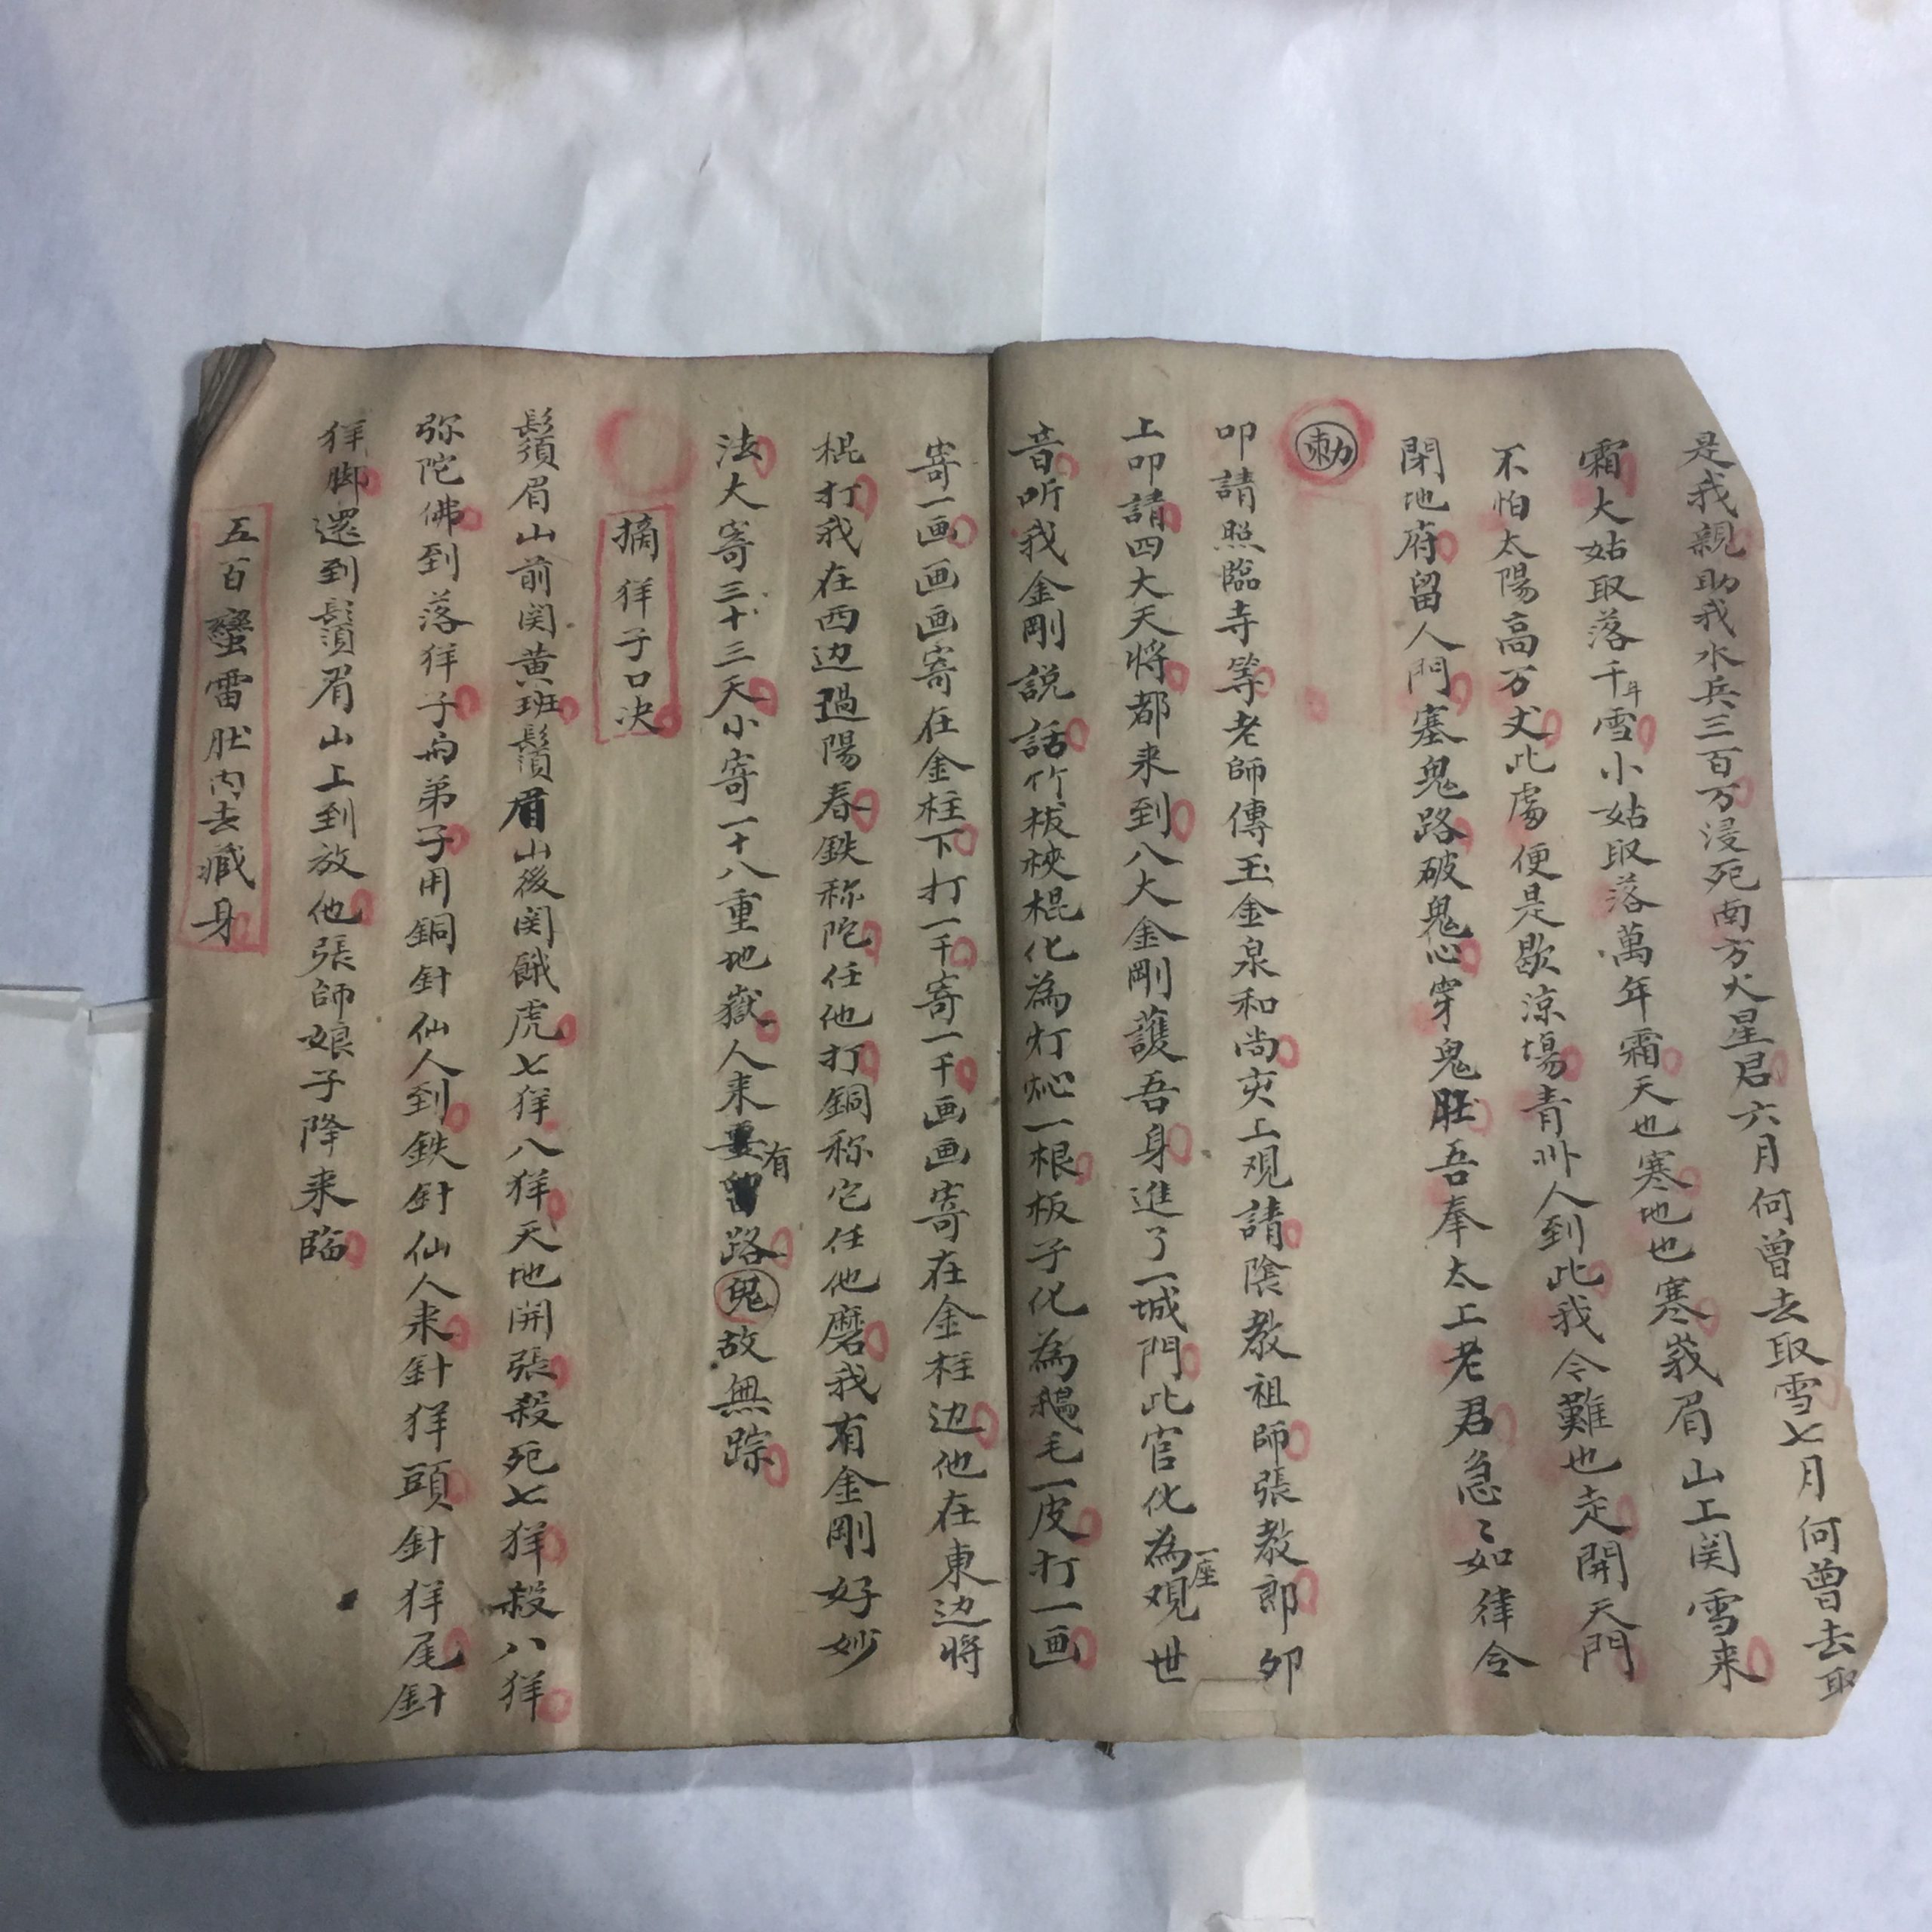 是我親助我水兵三百万浸死南方火星君六月何曾去取雪七月何曾去取
霜大姑取落千年雪小姑取落萬年霜天也寒地也寒峩眉山上関雪来
不怕太陽高万丈此處便是歇涼塲青州人到此我令難也走開天門
閉地府留人門塞鬼路破鬼心穿鬼肚吾奉太上老君急〻如律令
勅
叩請照臨寺等老師傳玉金泉和尚灾上观請陰教祖師張教郎夘
上叩請四大天將都来到八大金剛護吾身進了一城門此官化為一座观世
音听我金剛説話竹板梜棍化為灯炪一根板子化為鵝毛一皮打一画
寄一画画画寄在金柱下打一千寄一千画画寄在金柱边他在東边将
棍打我在西边過陽春鉄称陀任他打銅称它任他磨我有金剛好妙
法大寄三十三天小寄一十八重地嶽人来有路鬼故無踪
摘猐子口决
鬚眉山前関黄班鬚眉山後関餓虎七猐八猐天地開張殺死七猐殺八猐
弥陀佛到落猐子内弟子用銅針仙人到鉄針仙人来針猐頭針猐尾針
猐脚還到鬚眉山上到放他張師娘子降来臨
五百蠻雷肚内去藏身